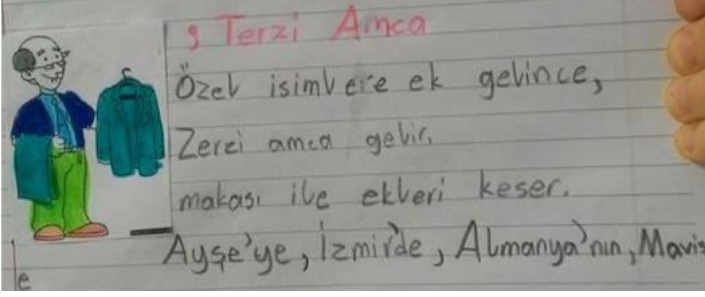 ş Terzi Amca
Özel isimlere ek gelince,
Zerzi amca gelir.
makası ile ekleri keser.
Ayşe'ye, İzmir'de, Almanya'nın, Maviş
le